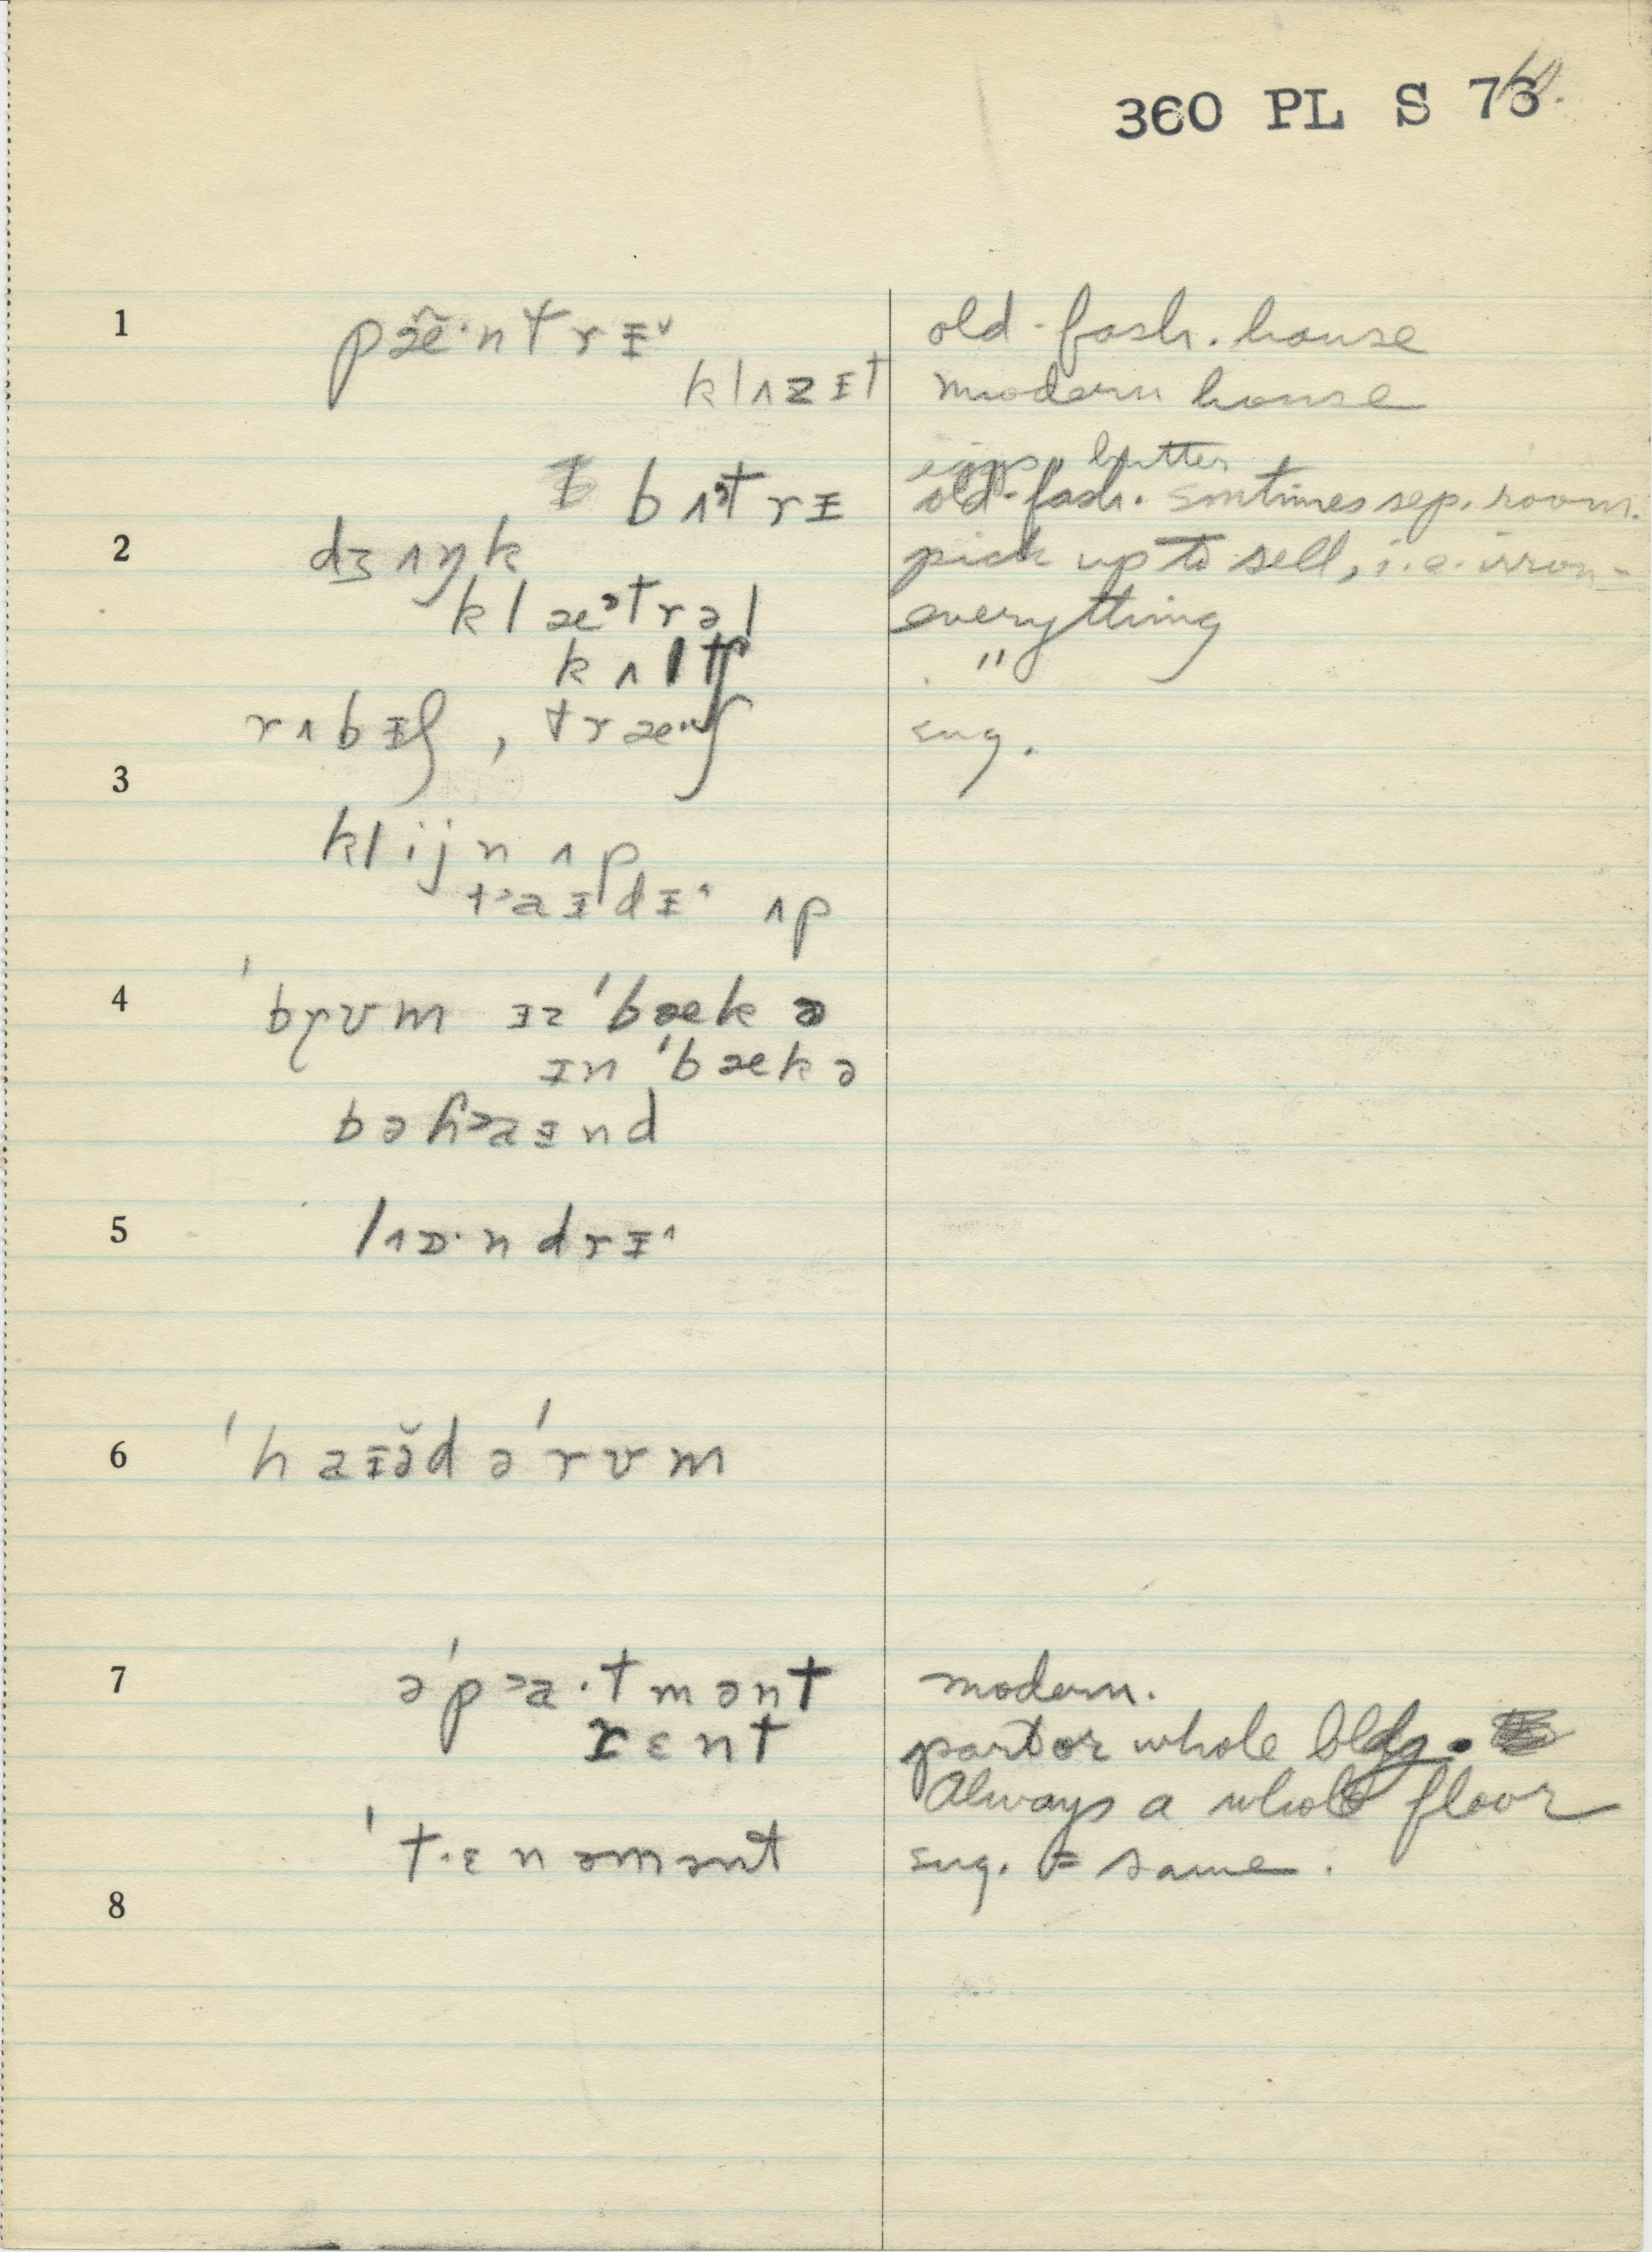 360 PL S 76
1 pæ̃·ntrɪ˅ old-fash. house
klʌzɪt modern house
eggs, butter
bʌˀtrɪ old-fash. somtimes sep. room.
2 dʒʌŋk pick up to sell, i.e. iron-
klæˀtrəl everything
kʌltʃ "
rʌbɪʃ, træʃ sug.
3
klijn ʌp
tᵊaɪdɪ˄ ʌp
4 ˈbrʊm ɪz ˈbæk ə
ɪn ˈbæk ə
bəɦᵊaɪnd
5 lɒ·ndrɪ˄
6 ˈhaɪə̆d əˈrʊm
7 əˈpᵊa·tmənt modern.
rɛnt part or whole bldg.
Always a whole floor
ˈt·ɛnəmənt sug. = same.
8